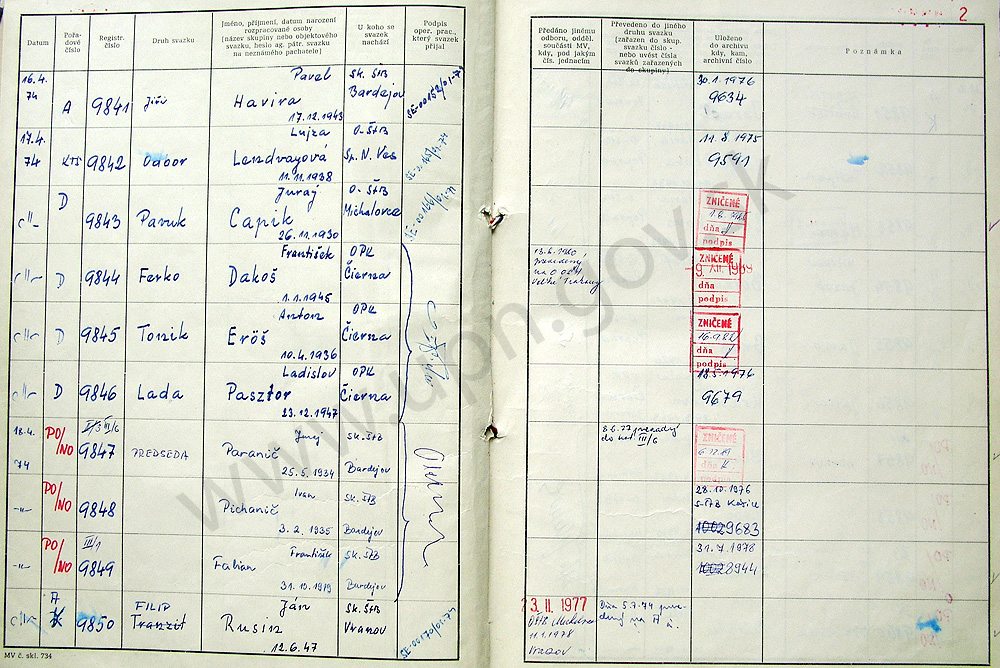 Datum
Pořadové číslo
Registr. číslo
Druh svazku
Jméno, příjmení, datum narození rozpracované osoby
[název skupiny nebo objektového svazku, heslo ag. pátr. svazku na neznámého pachatele]
U koho se svazek nachází
Podpis oper. prac., který svazek přijal
Předáno jinému odboru, odděl. součásti MV, kdy, pod jakým čís. jednacím
Převedeno do jiného druhu svazku [zařazen do skup. svazku číslo - nebo uvést čísla svazků zařazených do skupiny]
Uloženo do archivu kdy, kam, archivní číslo
Poznámka
2
16.4. 74 A 9841 Jiří Pavel Havira 17.12.1943 Sk. ŠtB Bardejov
30.1.1976
9634
17.4. 74 KTS 9842 Odbor Lujza Lendvayová 11.11.1938 O-ŠtB Sp. N. Ves
11.8.1975
9591
-"- D 9843 Pavuk Juraj Capik 26.11.1930 O-ŠtB Michalovce
ZNIČENÉ
dňa
podpis
-"- D 9844 Ferko František Dakoš 1.1.1945 OPK Čierna
ZNIČENÉ
dňa
podpis
-"- D 9845 Tonik Anton Eröš 10.4.1936 OPK Čierna
ZNIČENÉ
dňa
podpis
-"- D 9846 Lada Ladislov Pasztor 23.12.1947 OPK Čierna
18.5.1976
9679
18.4. 74 PO/NO 9847 PREDSEDA Juraj Paranič 25.5.1934 Sk. ŠtB Bardejov
ZNIČENÉ
dňa
podpis
-"- PO/NO 9848 Ivan Pichanič 3.2.1935 Sk. ŠtB Bardejov
28.10.1976
S-ŠtB Košice
9683
-"- PO/NO III/1 9849 František Fabian 31.10.1919 Sk. ŠtB Bardejov
31.7.1978
8944
-"- A 9850 FILIP Tranzit Ján Rusin 12.6.47 Sk. ŠtB Vranov
SE-00170/01-74
23. II. 1977
11.1.1978
Vranov
MV č. skl. 734
www.upn.gov.sk